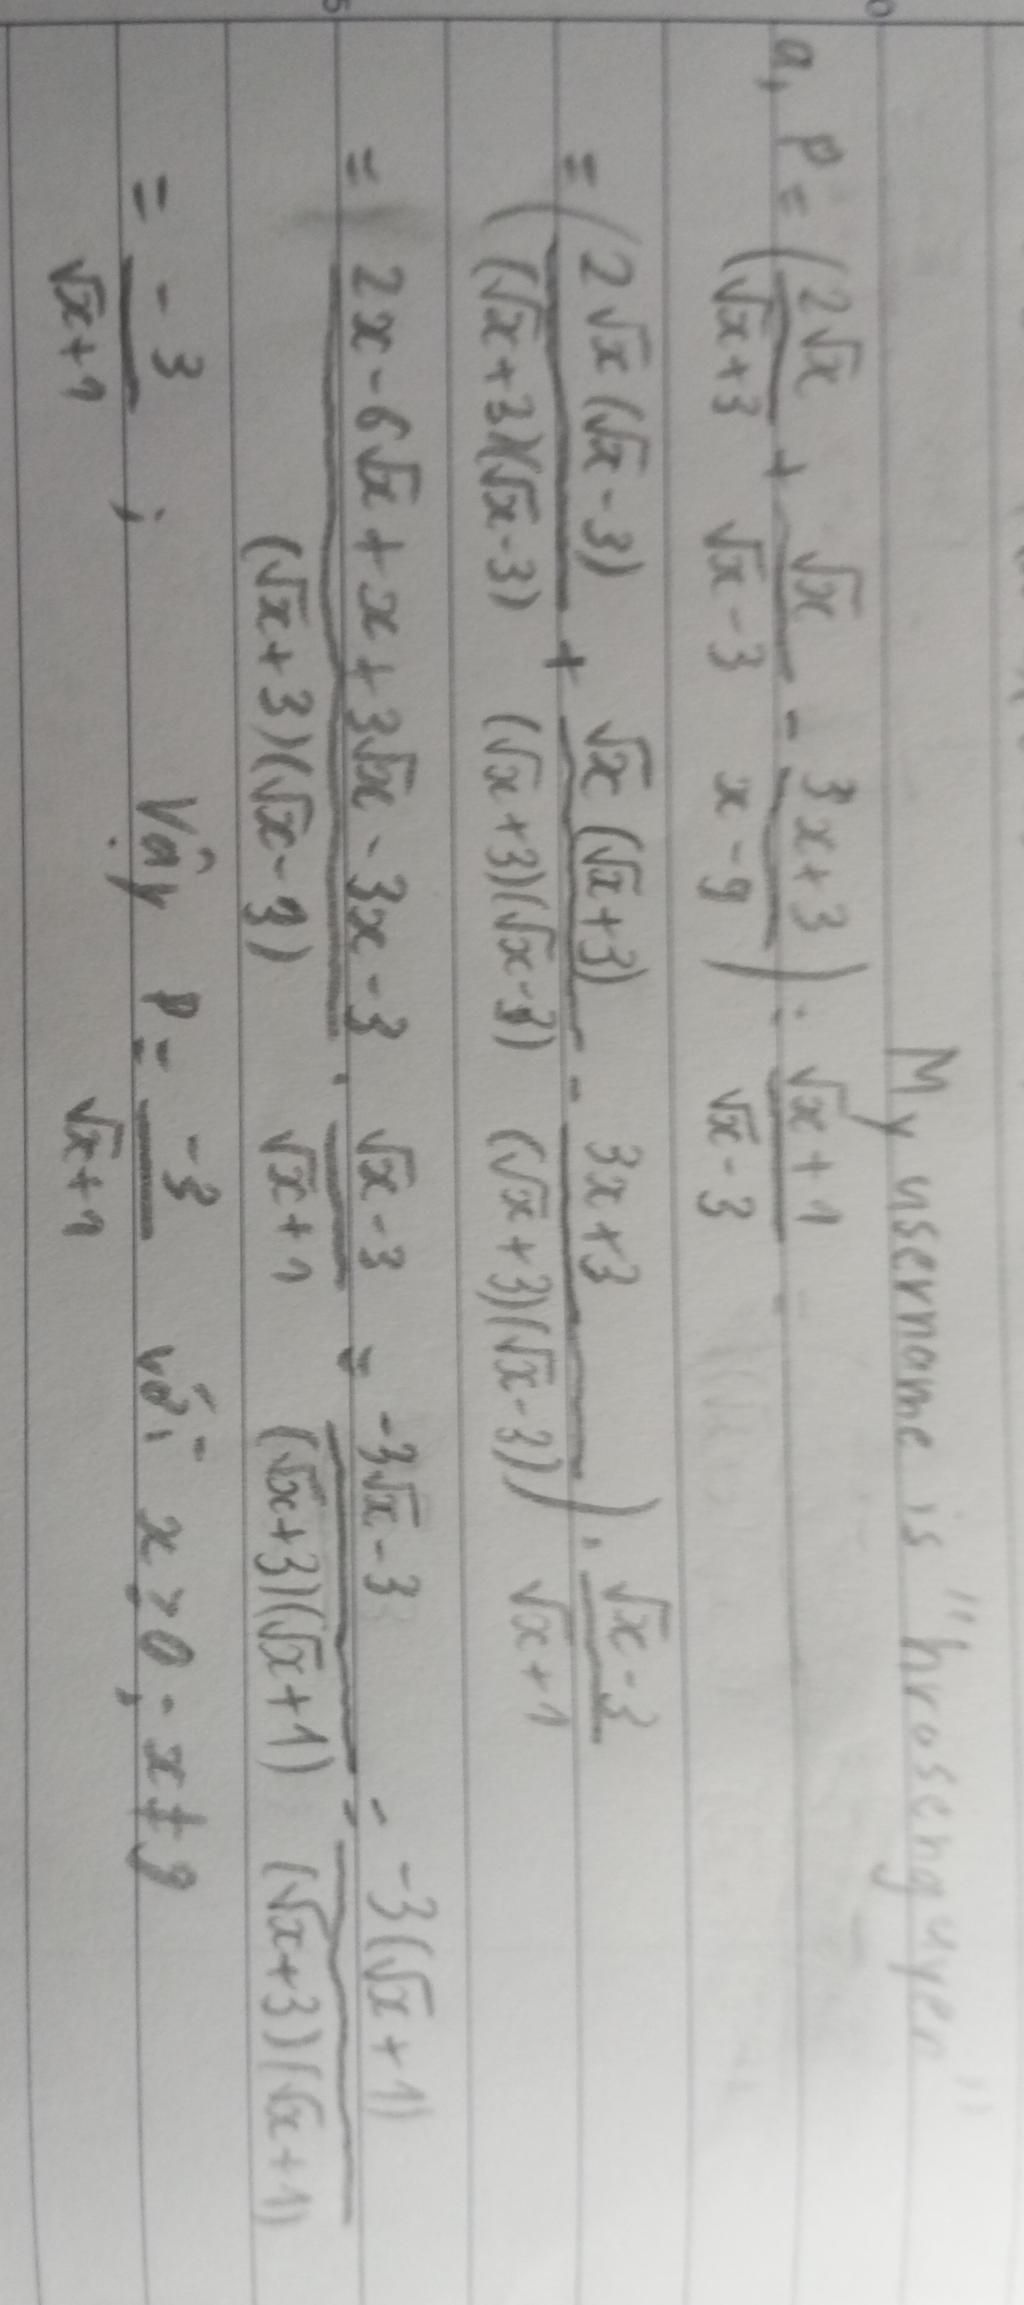 My username is "hrosenguyen"
a, P = (2√x/(√x+3) + √x/(√x-3) - (3x+3)/(x-9)) : (√x+1)/(√x-3)
= (2√x(√x-3)/((√x+3)(√x-3)) + √x(√x+3)/((√x+3)(√x-3)) - (3x+3)/((√x+3)(√x-3))) . (√x-3)/(√x+1)
= (2x-6√x+x+3√x-3x-3)/((√x+3)(√x-3)) . (√x-3)/(√x+1) = (-3√x-3)/((√x+3)(√x+1)) = -3(√x+1)/((√x+3)(√x+1))
= -3/(√x+1) ; Vậy P = -3/(√x+1) với x ≥ 0; x ≠ 9